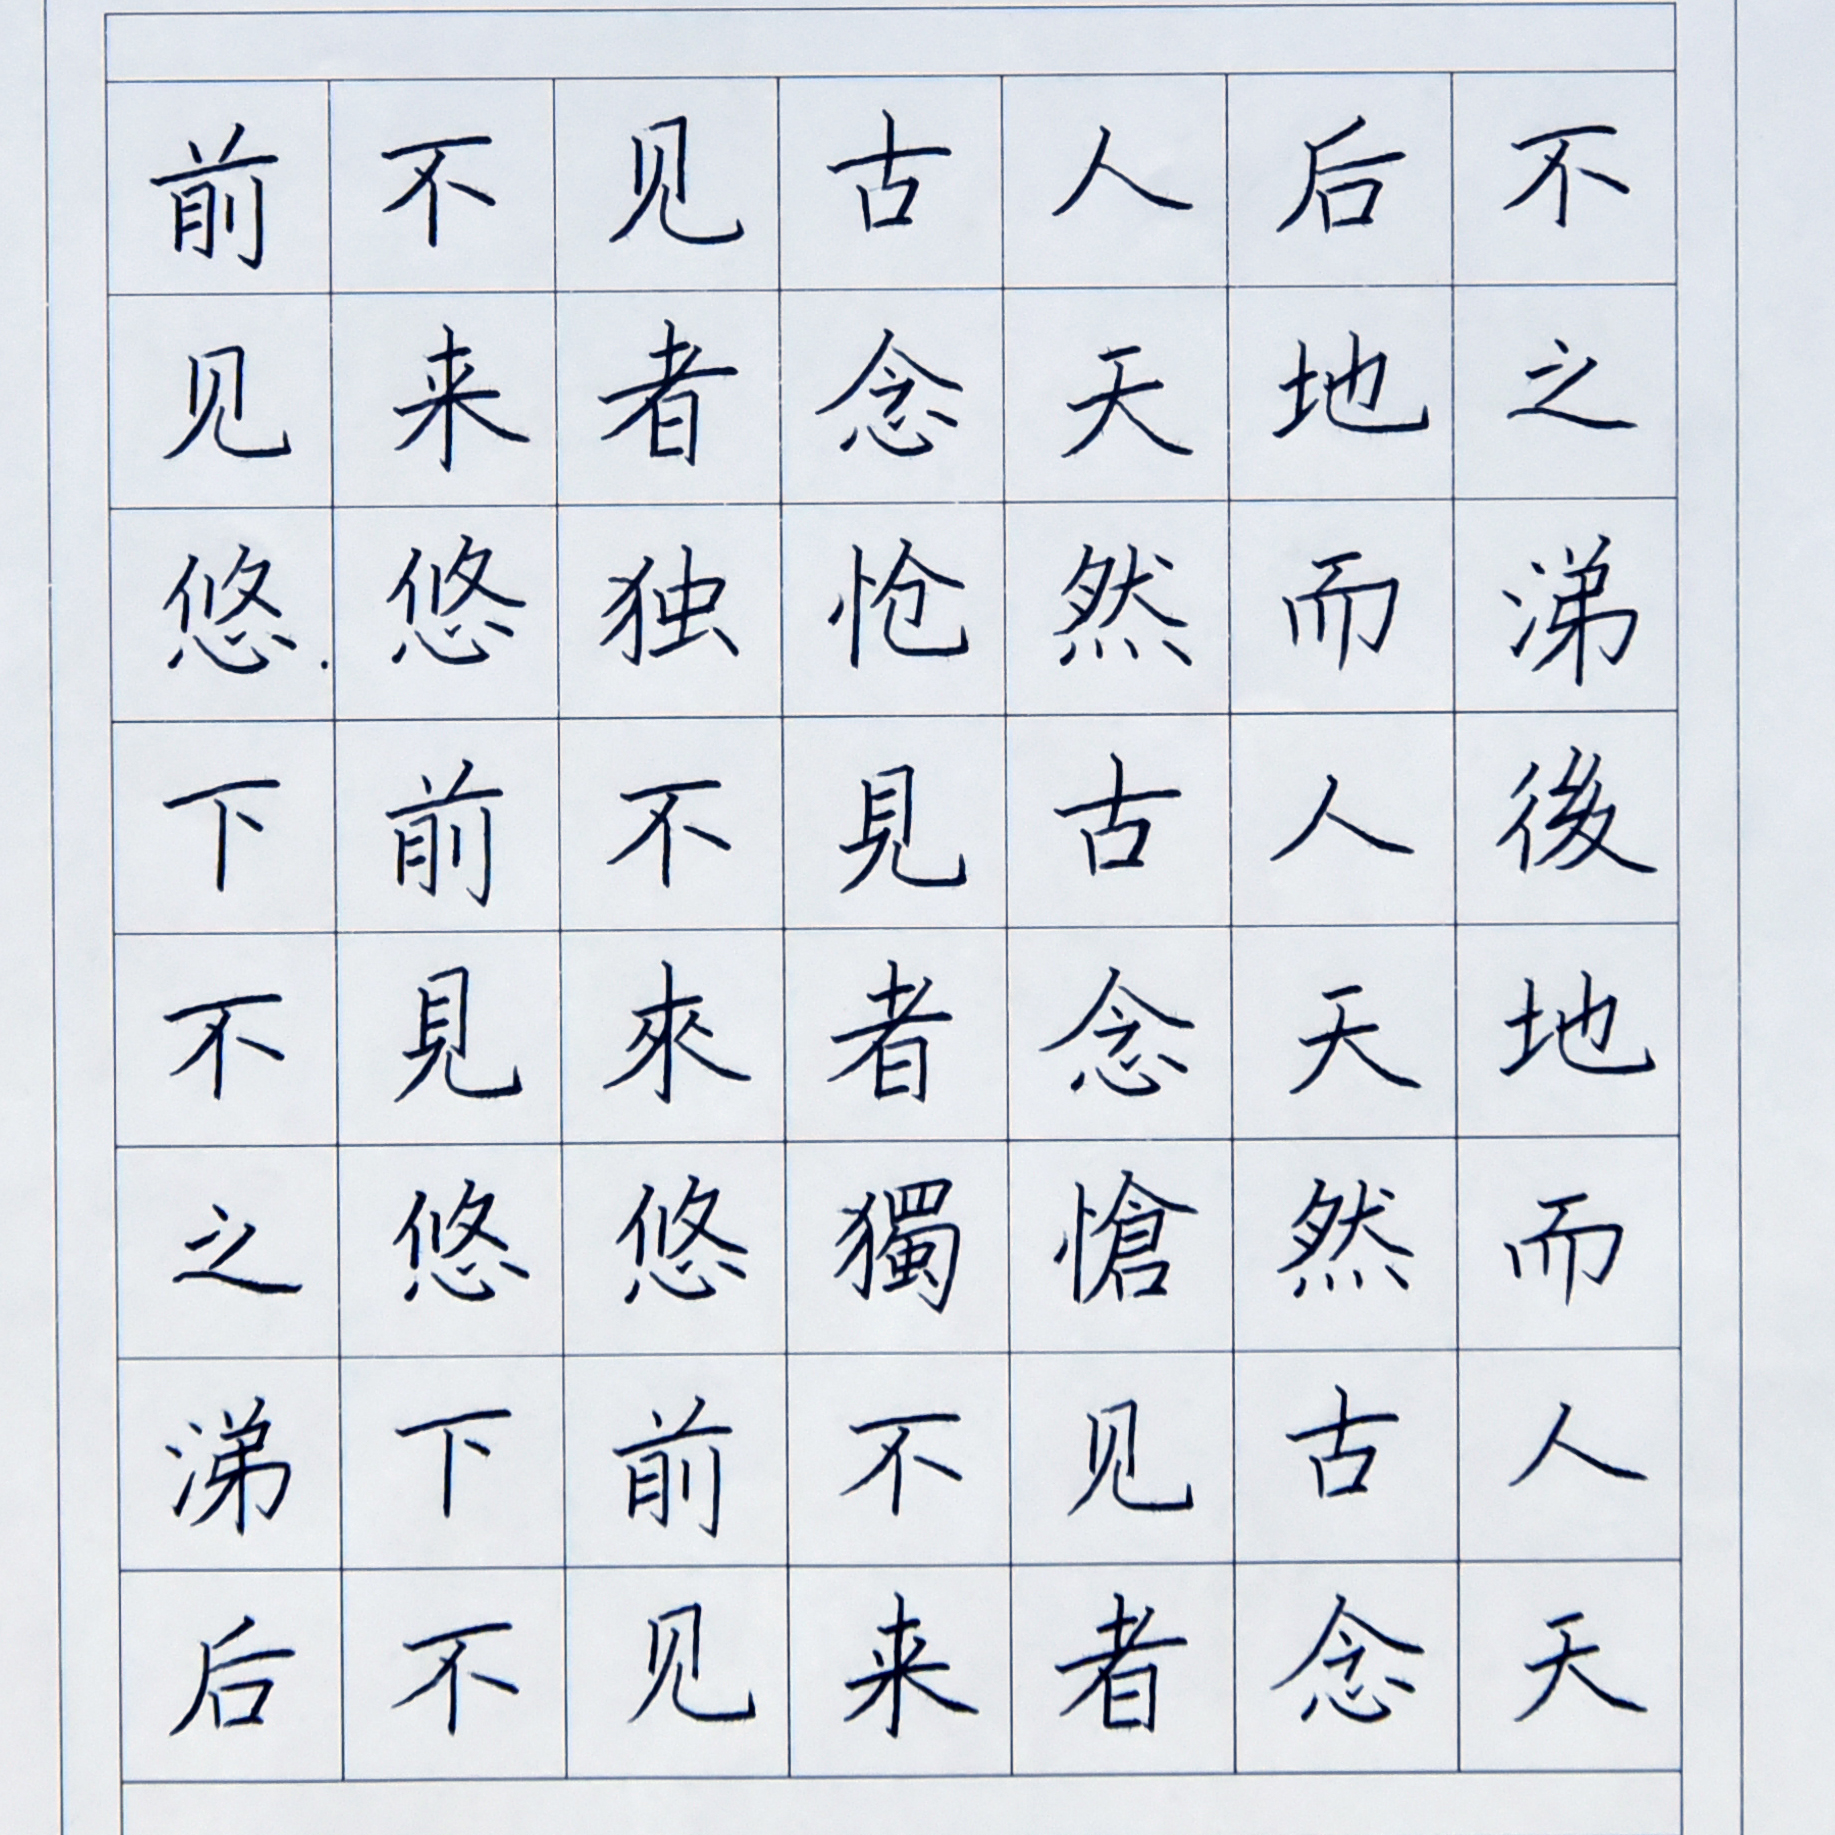 前不见古人后不
见来者念天地之
悠悠独怆然而涕
下前不見古人後
不見來者念天地
之悠悠獨愴然而
涕下前不见古人
后不见来者念天